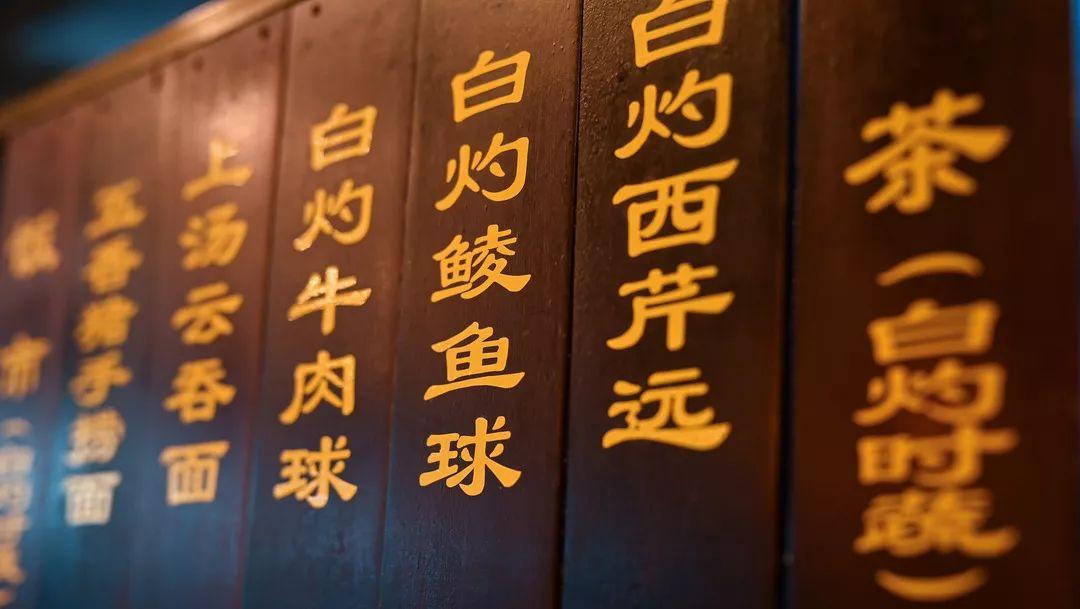 茶（白灼时蔬）
白灼西芹远
白灼鲮鱼球
白灼牛肉球
上汤云吞面
五香猪手捞面
市